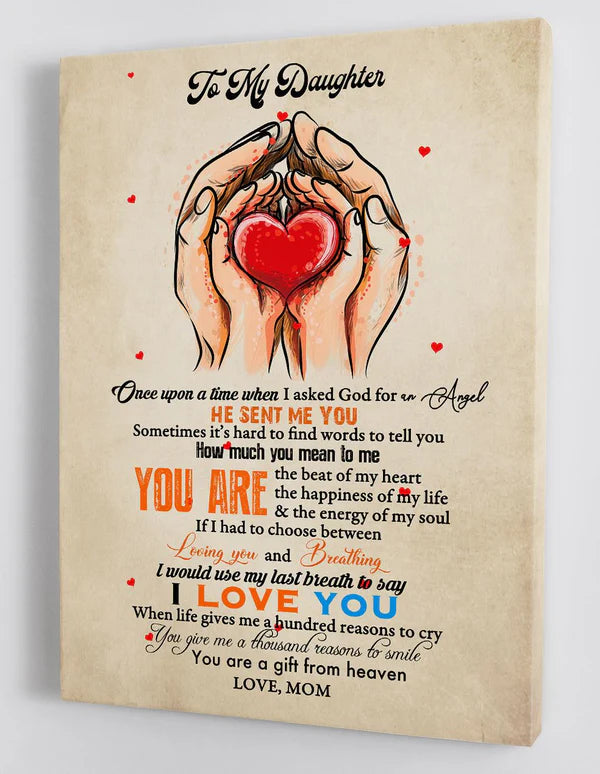 To My Daughter
Once upon a time when I asked God for an Angel
HE SENT ME YOU
Sometimes it's hard to find words to tell you
How much you mean to me
YOU ARE
the beat of my heart
the happiness of my life
& the energy of my soul
If I had to choose between
Loving you and Breathing
I would use my last breath to say
I LOVE YOU
When life gives me a hundred reasons to cry
You give me a thousand reasons to smile
You are a gift from heaven
LOVE, MOM